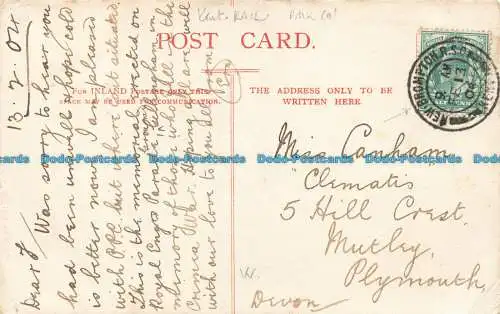 Kent. R.A.C.
POST CARD.
For INLAND POSTAGE ONLY THIS
SPACE MAY BE USED FOR COMMUNICATION.
THE ADDRESS ONLY TO BE
WRITTEN HERE.
13.2.04
Dear J/ Was sorry to hear you
had been unwell & hope cold
is better now. I am pleased
with P.P.C. but where is it situated.
This is the memorial erected on
Royal Engs Parade Chatham in
memory of those who fell in the
Crimea War. Hoping all are well
with our love to you all from
Miss Canham
Clematis
5 Hill Crest
Mutley,
Plymouth.
Devon
W.
Dodo-Postcards Dodo-Postcards Dodo-Postcards Dodo-Postcards